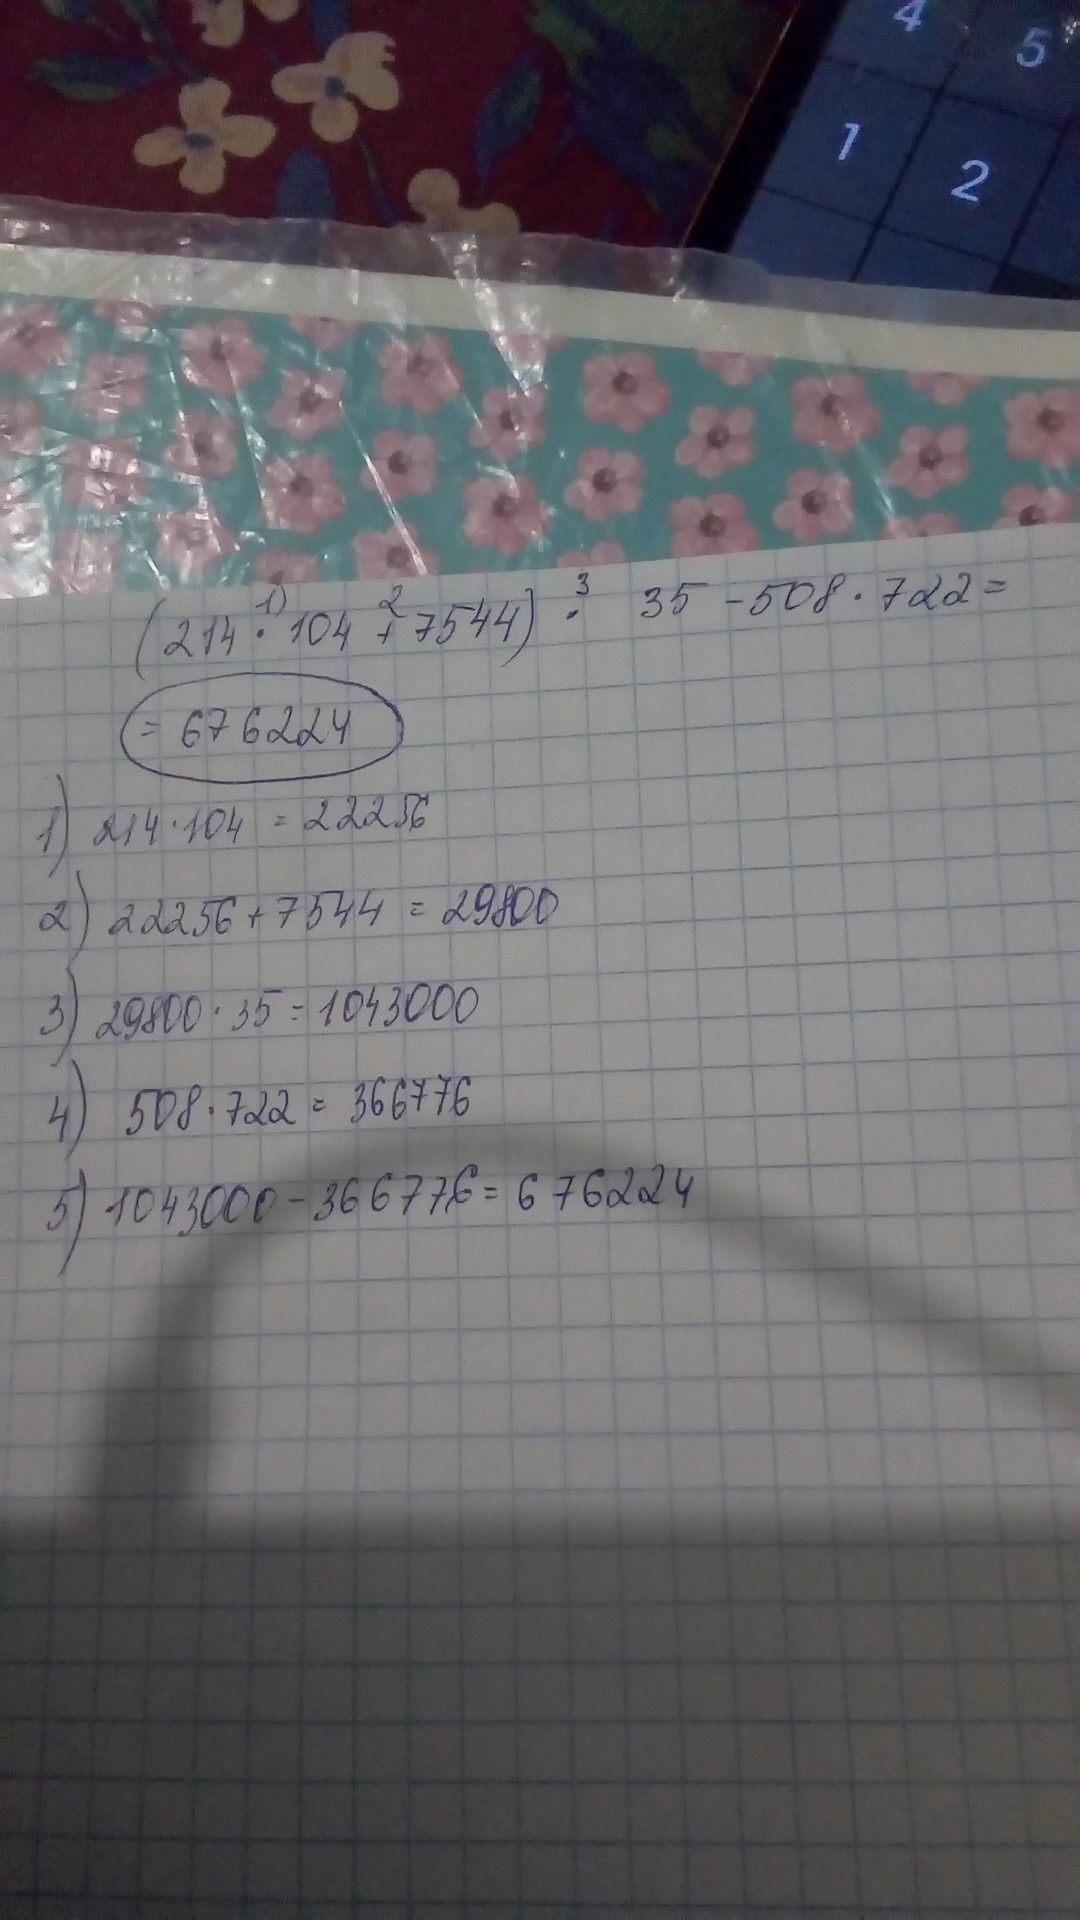 4 5
1 2
1) 2 3
(214 · 104 + 7544) · 35 - 508 · 722 =
= 676224
1) 214 · 104 = 22256
2) 22256 + 7544 = 29800
3) 29800 · 35 = 1043000
4) 508 · 722 = 366776
5) 1043000 - 366776 = 676224